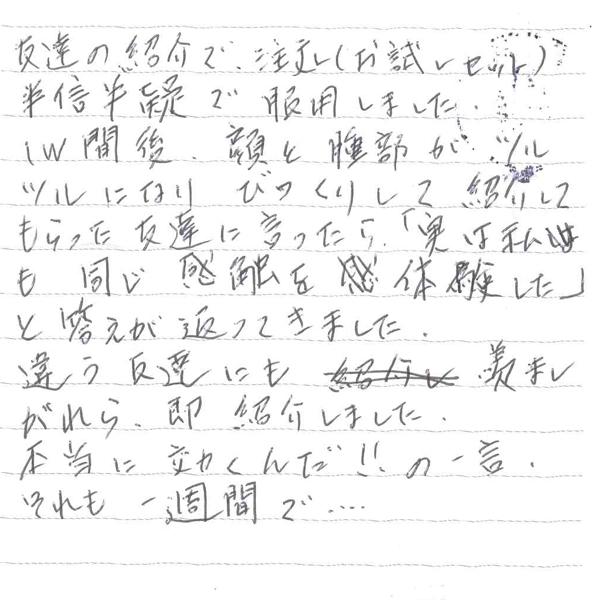 友達の紹介で、注文し(お試しセット)
半信半疑で服用しました.
1W間後、顔と腫部がツル
ツルになり びっくりして紹介して
もらった友達に言ったら、「実は私
も同じ感触を体験した」
と答えが返ってきました.
違う友達にも 羨まし
がれら、即紹介しました.
本当に効くんだ!!の一言.
それも一週間で....